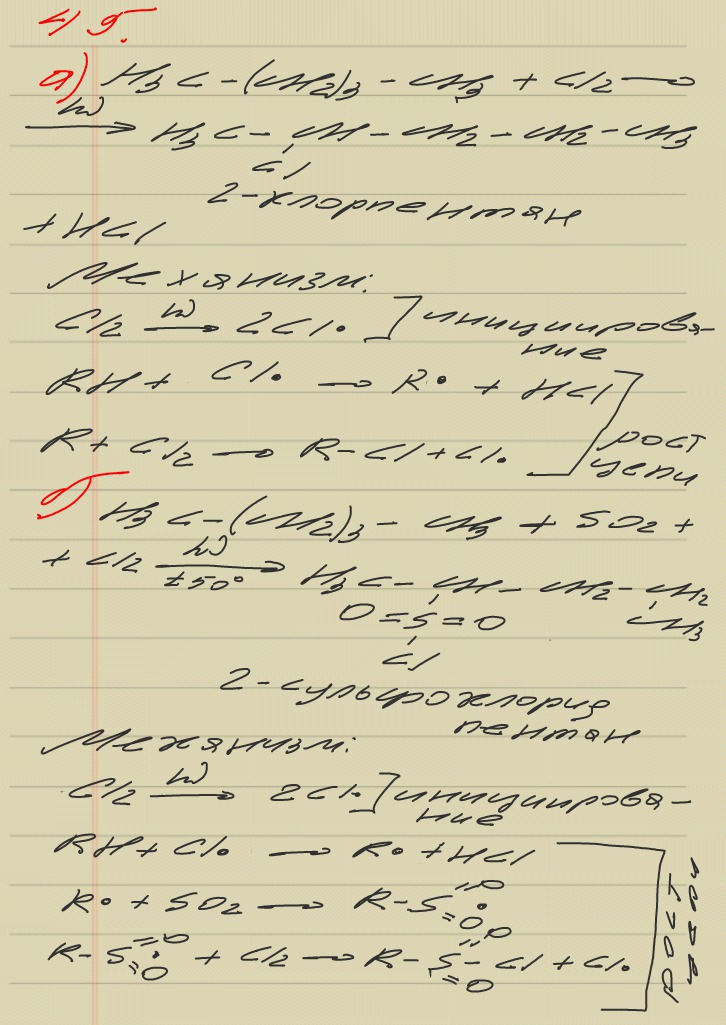 4) 5.
а) H3C-(CH2)3-CH3 + Cl2 →
hν → H3C-CH-CH2-CH2-CH3
Cl
2-хлорпентан
+ HCl
Механизм:
Cl2 hν → 2Cl• ] инициирова-
ние
RH + Cl• → R• + HCl
R + Cl2 → R-Cl + Cl•
рост
цепи
б H3C-(CH2)3-CH3 + SO2 +
+ Cl2 hν → H3C-CH-CH2-CH2
±50°
O=S=O CH3
Cl
2-сульфохлорид
пентан
Механизм:
Cl2 hν → 2Cl• ] инициирова-
ние
RH + Cl• → R• + HCl
R• + SO2 → R-S•=O
=O
R-S•=O + Cl2 → R-S=O-Cl + Cl•
=O =O
рост